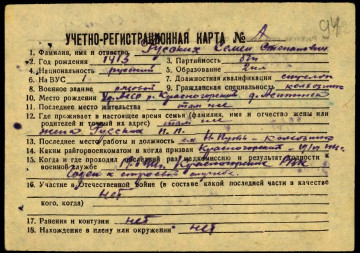 94
УЧЕТНО-РЕГИСТРАЦИОННАЯ КАРТА № А
1. Фамилия, имя и отчество Русских Семен Степанович
2. Год рождения 1913 3. Партийность б/п
4. Национальность русский 5. Образование
6. На ВУС 1 7. Должностная квалификация стрелок
8. Военное звание рядовой 9. Гражданская специальность колхозник
10. Место рождения Уд. АССР Красногорский д.
11. Последнее место жительства там же
12. Где проживает в настоящее время семья (фамилия, имя и отчество жены или
родителей и точный их адрес) там же
жена Русских
13. Последнее место работы и должность колхозник
14. Каким райгорвоенкоматом и когда призван Красногорский
15. Когда и где проходил последний раз медкомиссию и результат годности
к военной службе Красногорский РВК
Годен к строевой службе.
16. Участие в Отечественной войне (в составе какой последней части в качестве
кого, когда) нет
17. Ранения и контузии нет
18. Нахождение в плену или окружении нет